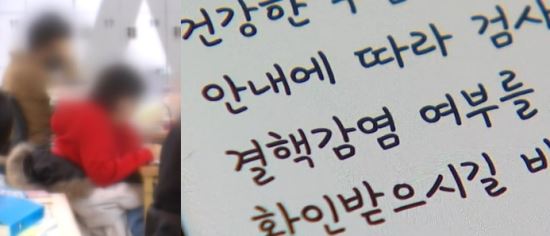 건강한
안내에 따라 검사
결핵감염 여부를
확인받으시길 바